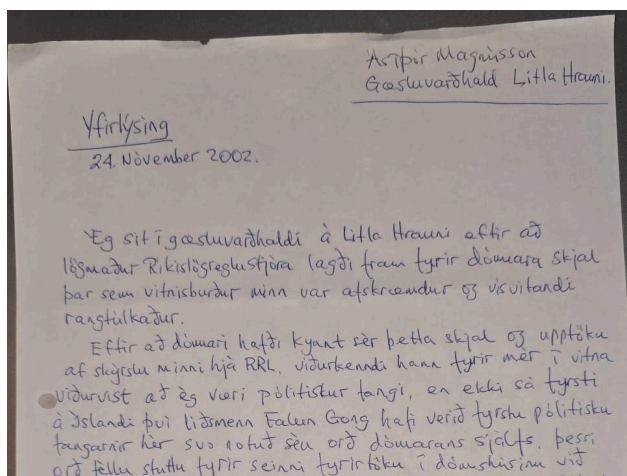 Ástþór Magnússon
Gæsluvarðhald Litla Hrauni.
Yfirlýsing
24. Nóvember 2002.
Ég sit í gæsluvarðhaldi á Litla Hrauni eftir að
lögmaður Ríkislögreglustjóra lagði fram fyrir dómara skjal
þar sem vitnisburður minn var afskræmdur og vísvitandi
rangtúlkaður.
Eftir að dómari hafði kynnt sér þetta skjal og upptöku
af skýrslu minni hjá RRL, viðurkenndi hann fyrir mér í vitna
viðurvist að ég væri pólitískur fangi, en ekki sá fyrsti
á Íslandi því liðsmenn Falun Gong hafi verið fyrstu pólitísku
fangarnir hér svo notuð séu orð dómarans sjálfs. Þessi
orð féllu stuttu fyrir seinni fyrirtöku í dómshúsinu við